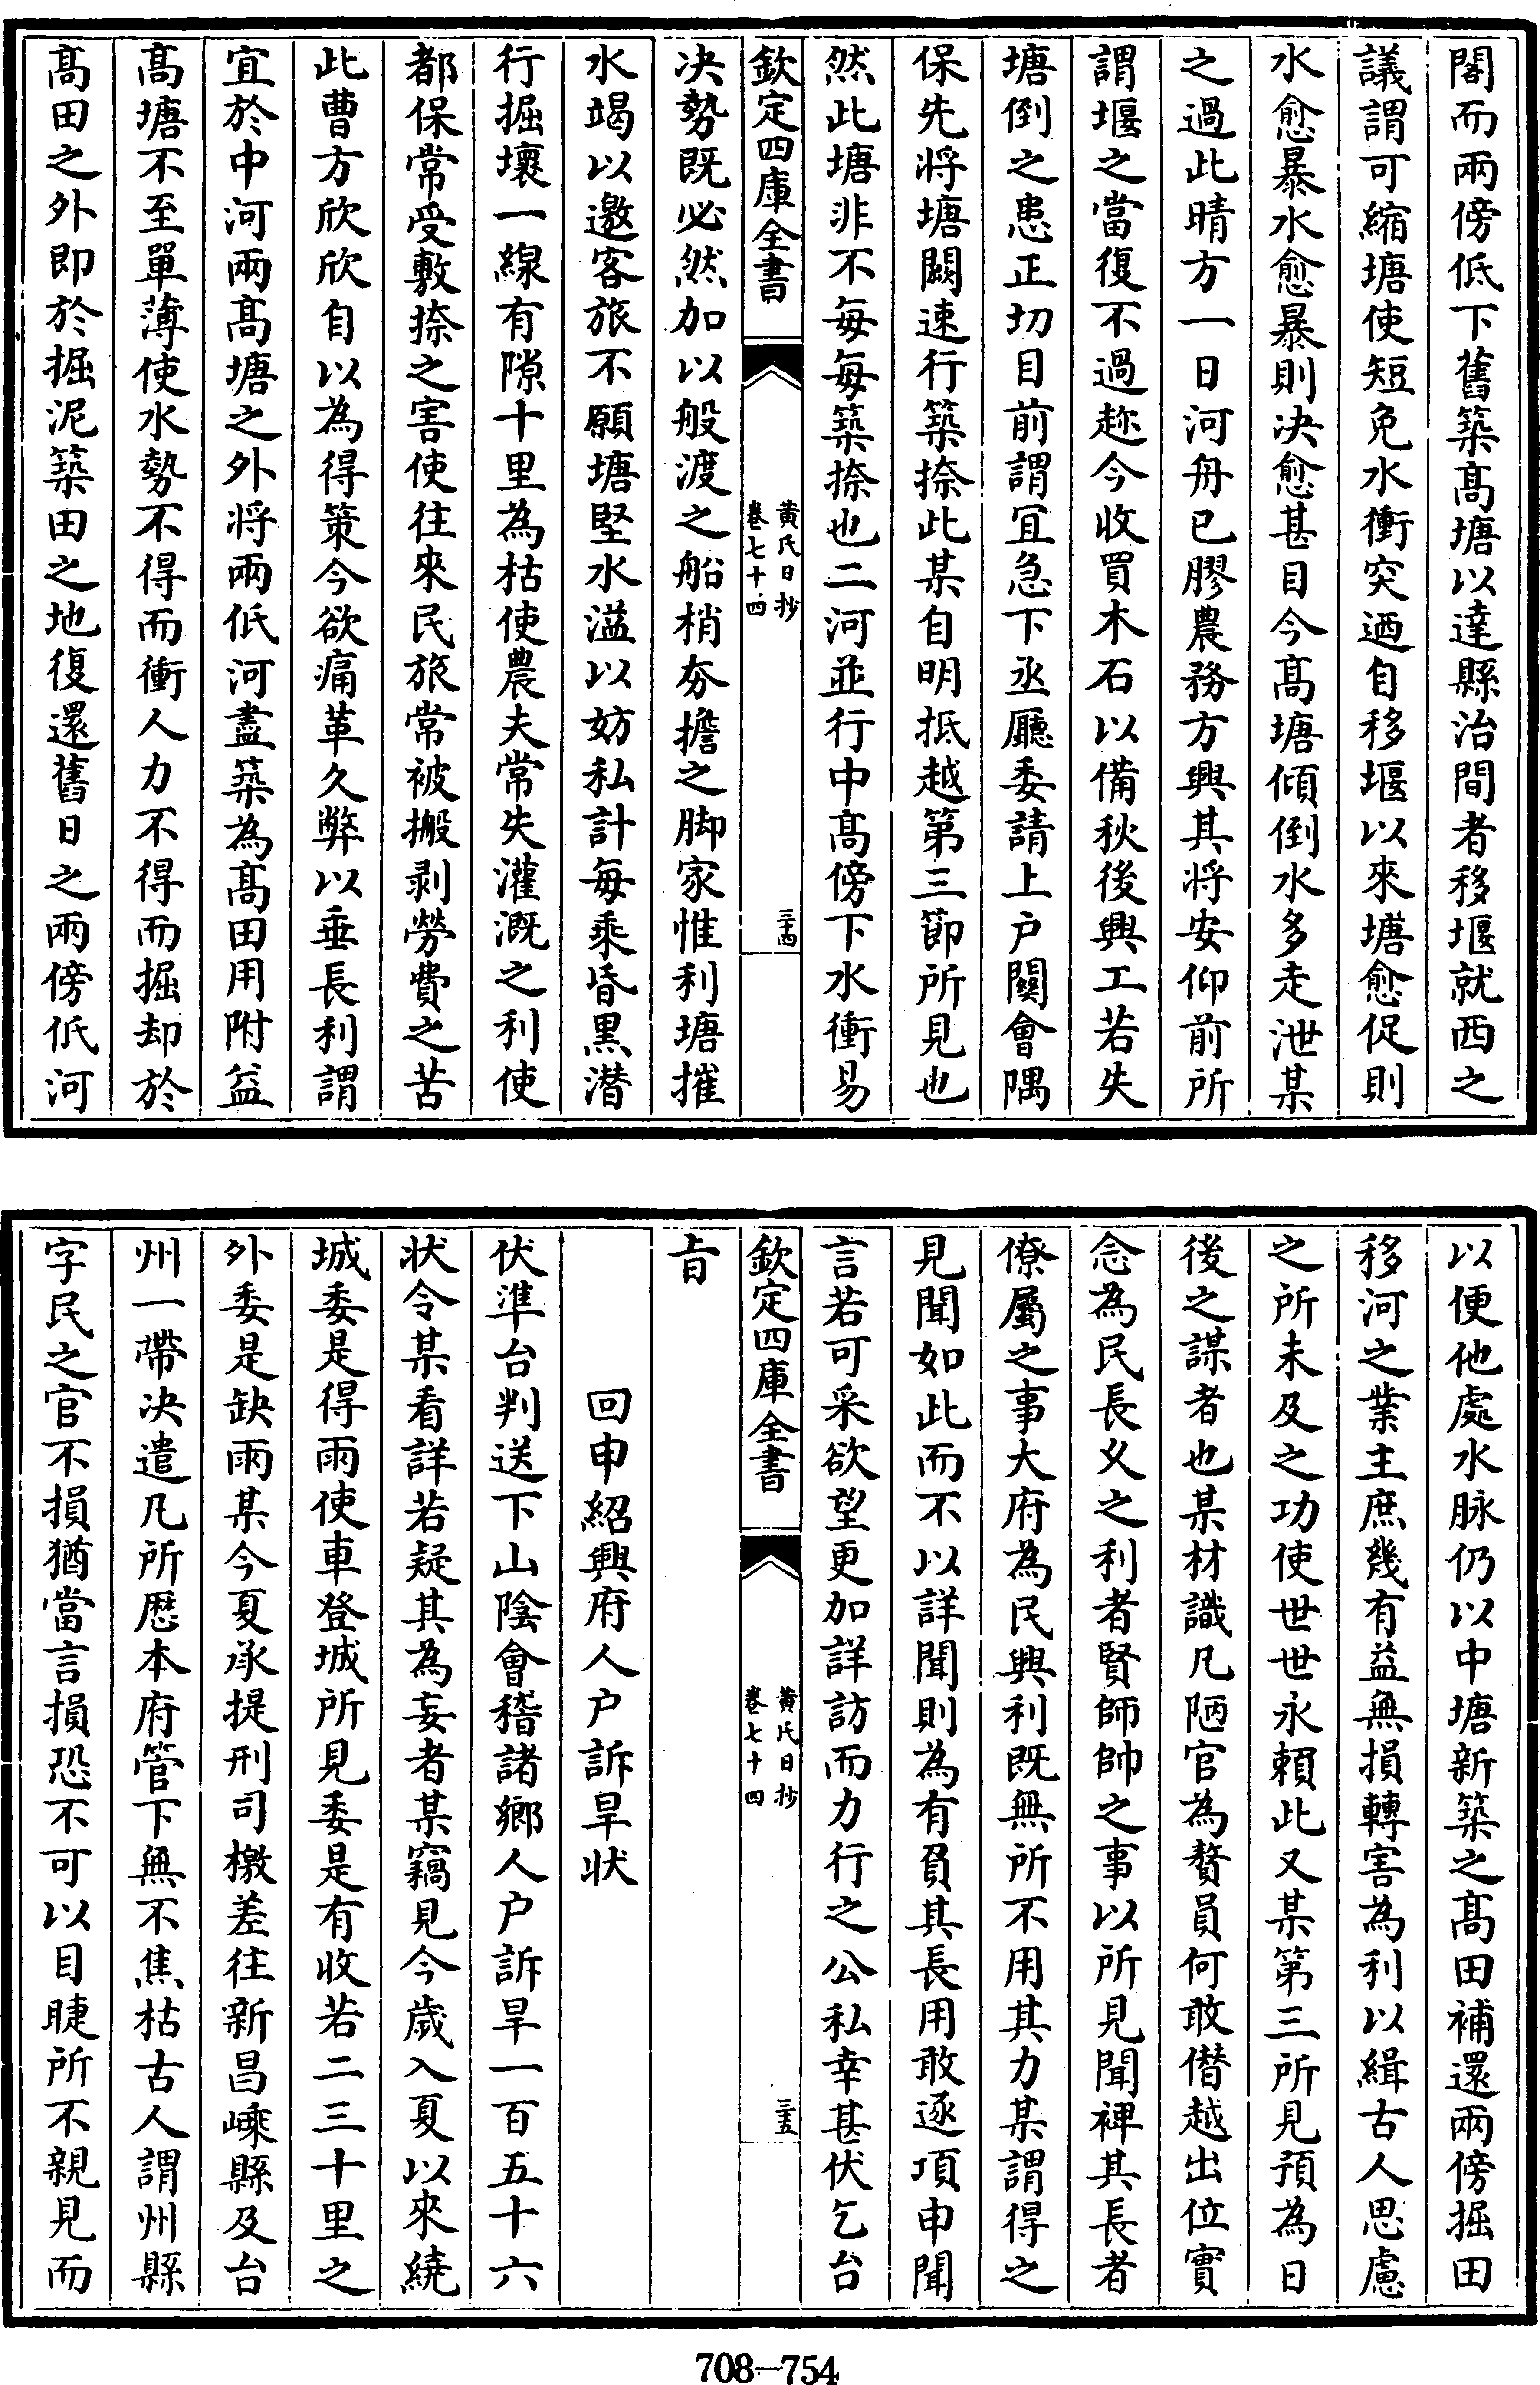 閣而兩傍低下舊築髙塘以達縣治間者移堰就西之
議謂可縮塘使短免水衝突迺自移堰以來塘愈促則
水愈暴水愈暴則决愈甚目今髙塘傾倒水多走泄某
之過此晴方一日河舟已膠農務方興其将安仰前所
謂堰之當復不過趂今收買木石以備秋後興工若失
塘倒之患正切目前謂宜急下丞廳委請上户闗會隅
保先将塘闕速行築捺此某自明抵越第三節所見也
然此塘非不每每築捺也二河並行中髙傍下水衝易
欽定四庫全書
黄氏日抄
卷七十四
三十四
决勢既必然加以般渡之船梢夯擔之脚家惟利塘摧
水竭以邀客旅不願塘堅水溢以妨私計每乘昏黒潜
行掘壞一線有隙十里為枯使農夫常失灌溉之利使
都保常受敷捺之害使往來民旅常被搬剥勞費之苦
此曹方欣欣自以為得策今欲痛革久弊以垂長利謂
宜於中河兩髙塘之外将兩低河盡築為髙田用附益
髙塘不至單薄使水勢不得而衝人力不得而掘却於
髙田之外即於掘泥築田之地復還舊日之兩傍低河
以便他處水脉仍以中塘新築之髙田補還兩傍掘田
移河之業主庶幾有益無損轉害為利以緝古人思慮
之所未及之功使世世永頼此又某第三所見預為日
後之謀者也某材識凡陋官為贅員何敢僣越出位實
念為民長乆之利者賢師帥之事以所見聞裨其長者
僚屬之事大府為民興利既無所不用其力某謂得之
見聞如此而不以詳聞則為有負其長用敢逐項申聞
言若可采欲望更加詳訪而力行之公私幸甚伏乞台
欽定四庫全書
黄氏日抄
卷七十四
三十五
㫖
回申紹興府人户訴旱状
伏準台判送下山陰會稽諸鄉人户訴旱一百五十六
状令某看詳若疑其為妄者某竊見今歲入夏以來繞
城委是得雨使車登城所見委是有收若二三十里之
外委是缺雨某今夏承提刑司檄差往新昌嵊縣及台
州一帶决遣凡所歴本府管下無不焦枯古人謂州縣
字民之官不損猶當言損恐不可以目睫所不親見而
708—754